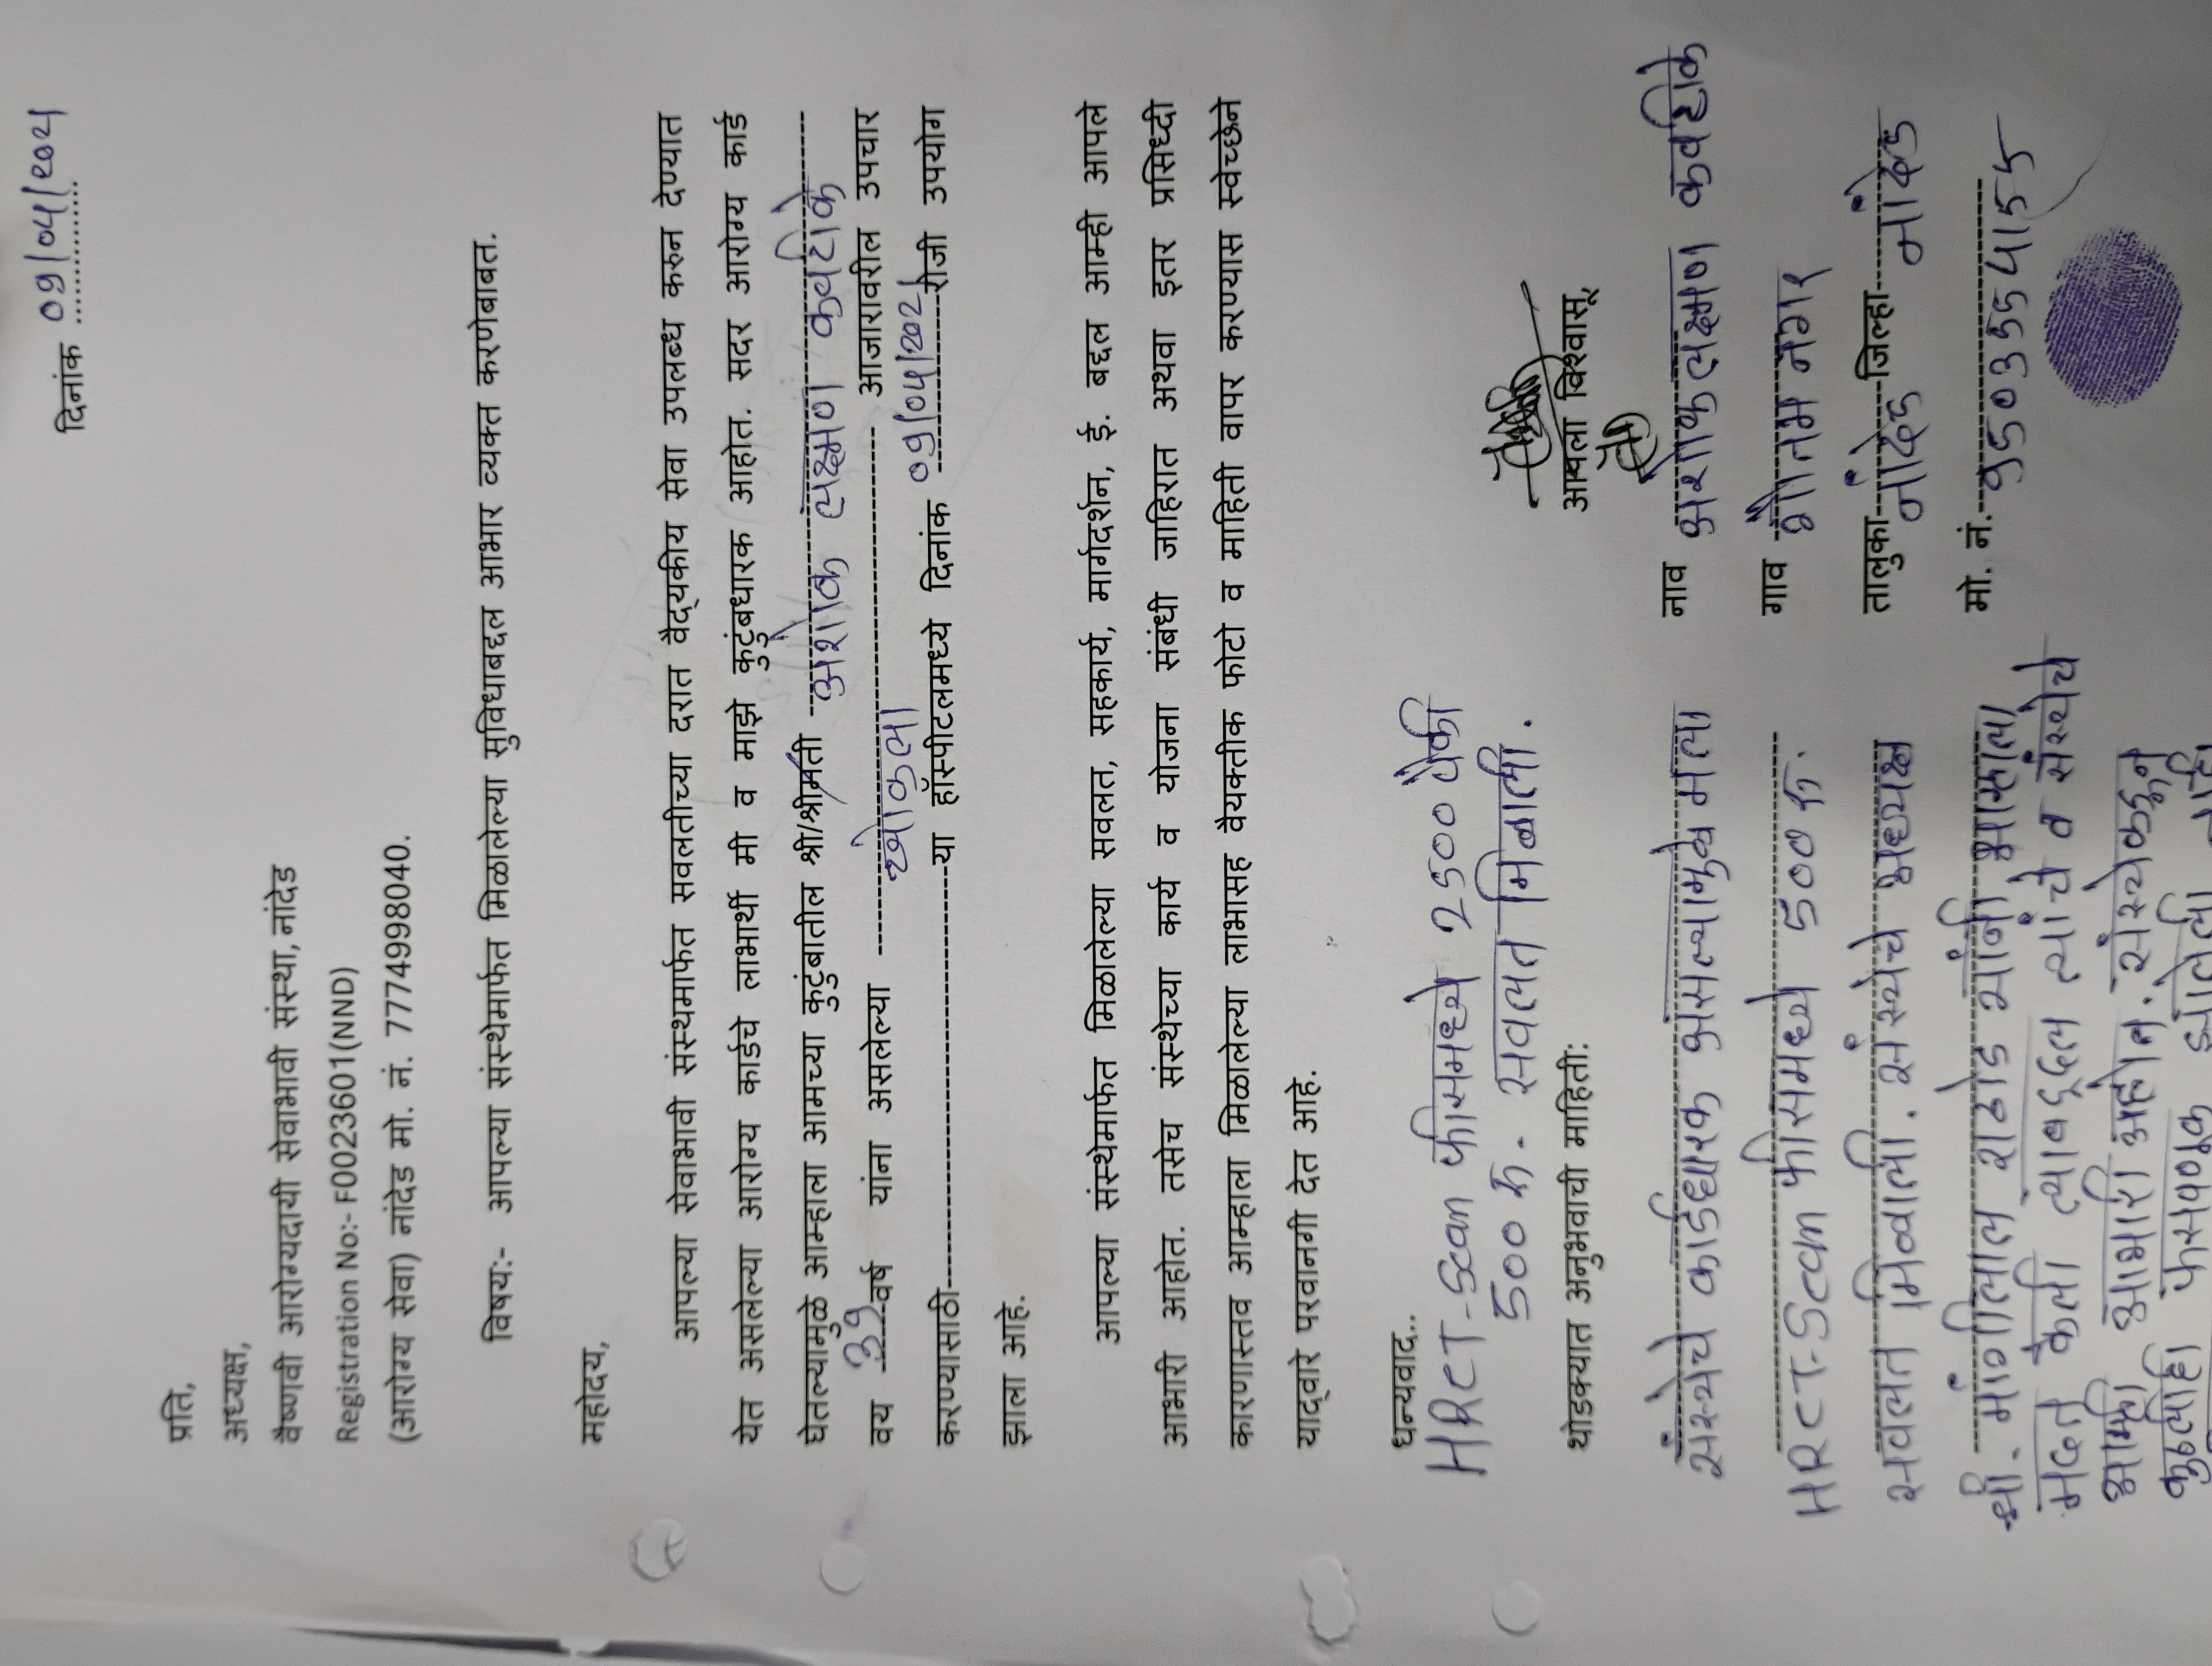 दिनांक ०१/०५/२०२५
प्रति,
अध्यक्ष,
वैष्णवी आरोग्यदायी सेवाभावी संस्था, नांदेड
Registration No:- F0023601(NND)
(आरोग्य सेवा) नांदेड मो. नं. 7774998040.
विषय:- आपल्या संस्थेमार्फत मिळालेल्या सुविधाबद्दल आभार व्यक्त करणेबाबत.
महोदय,
आपल्या सेवाभावी संस्थमार्फत सवलतीच्या दरात वैद्यकीय सेवा उपलब्ध करुन देण्यात
येत असलेल्या आरोग्य कार्डचे लाभार्थी मी व माझे कुटुंबधारक आहोत. सदर आरोग्य कार्ड
घेतल्यामुळे आम्हाला आमच्या कुटुंबातील श्री/श्रीमती अशोक लक्ष्मण कवटीके
वय ३१ वर्ष यांना असलेल्या खोकला आजारावरील उपचार
करण्यासाठी या हॉस्पीटलमध्ये दिनांक ०१/०५/२०२ रोजी उपयोग
झाला आहे.
आपल्या संस्थेमार्फत मिळालेल्या सवलत, सहकार्य, मार्गदर्शन, ई. बद्दल आम्ही आपले
आभारी आहोत. तसेच संस्थेच्या कार्य व योजना संबंधी जाहिरात अथवा इतर प्रसिध्दी
कारणास्तव आम्हाला मिळालेल्या लाभासह वैयक्तीक फोटो व माहिती वापर करण्यास स्वेच्छेने
याद्वारे परवानगी देत आहे.
धन्यवाद..
HRCT-Scan फीसमध्ये 2500 पैकी
500 रु. सवलत मिळाली.
आपला विश्वासू,
थोडक्यात अनुभवाची माहिती:
संस्थेचे कार्डधारक असल्यामुळे मला
HRCT-Scan फीसमध्ये 500 रु.
सवलत मिळाली. संस्थेचे अध्यक्ष
श्री. मांगीलाल राठोड यांनी आम्हाला
मदत केली त्याबद्दल त्यांचे व संस्थेचे
आम्ही आभारी आहोत. संस्थेकडून
कुठलीही फसवणूक झालेली नाही
नाव अशोक लक्ष्मण कवटीके
गाव गौतम नगर
तालुका नांदेड जिल्हा नांदेड
मो. नं.